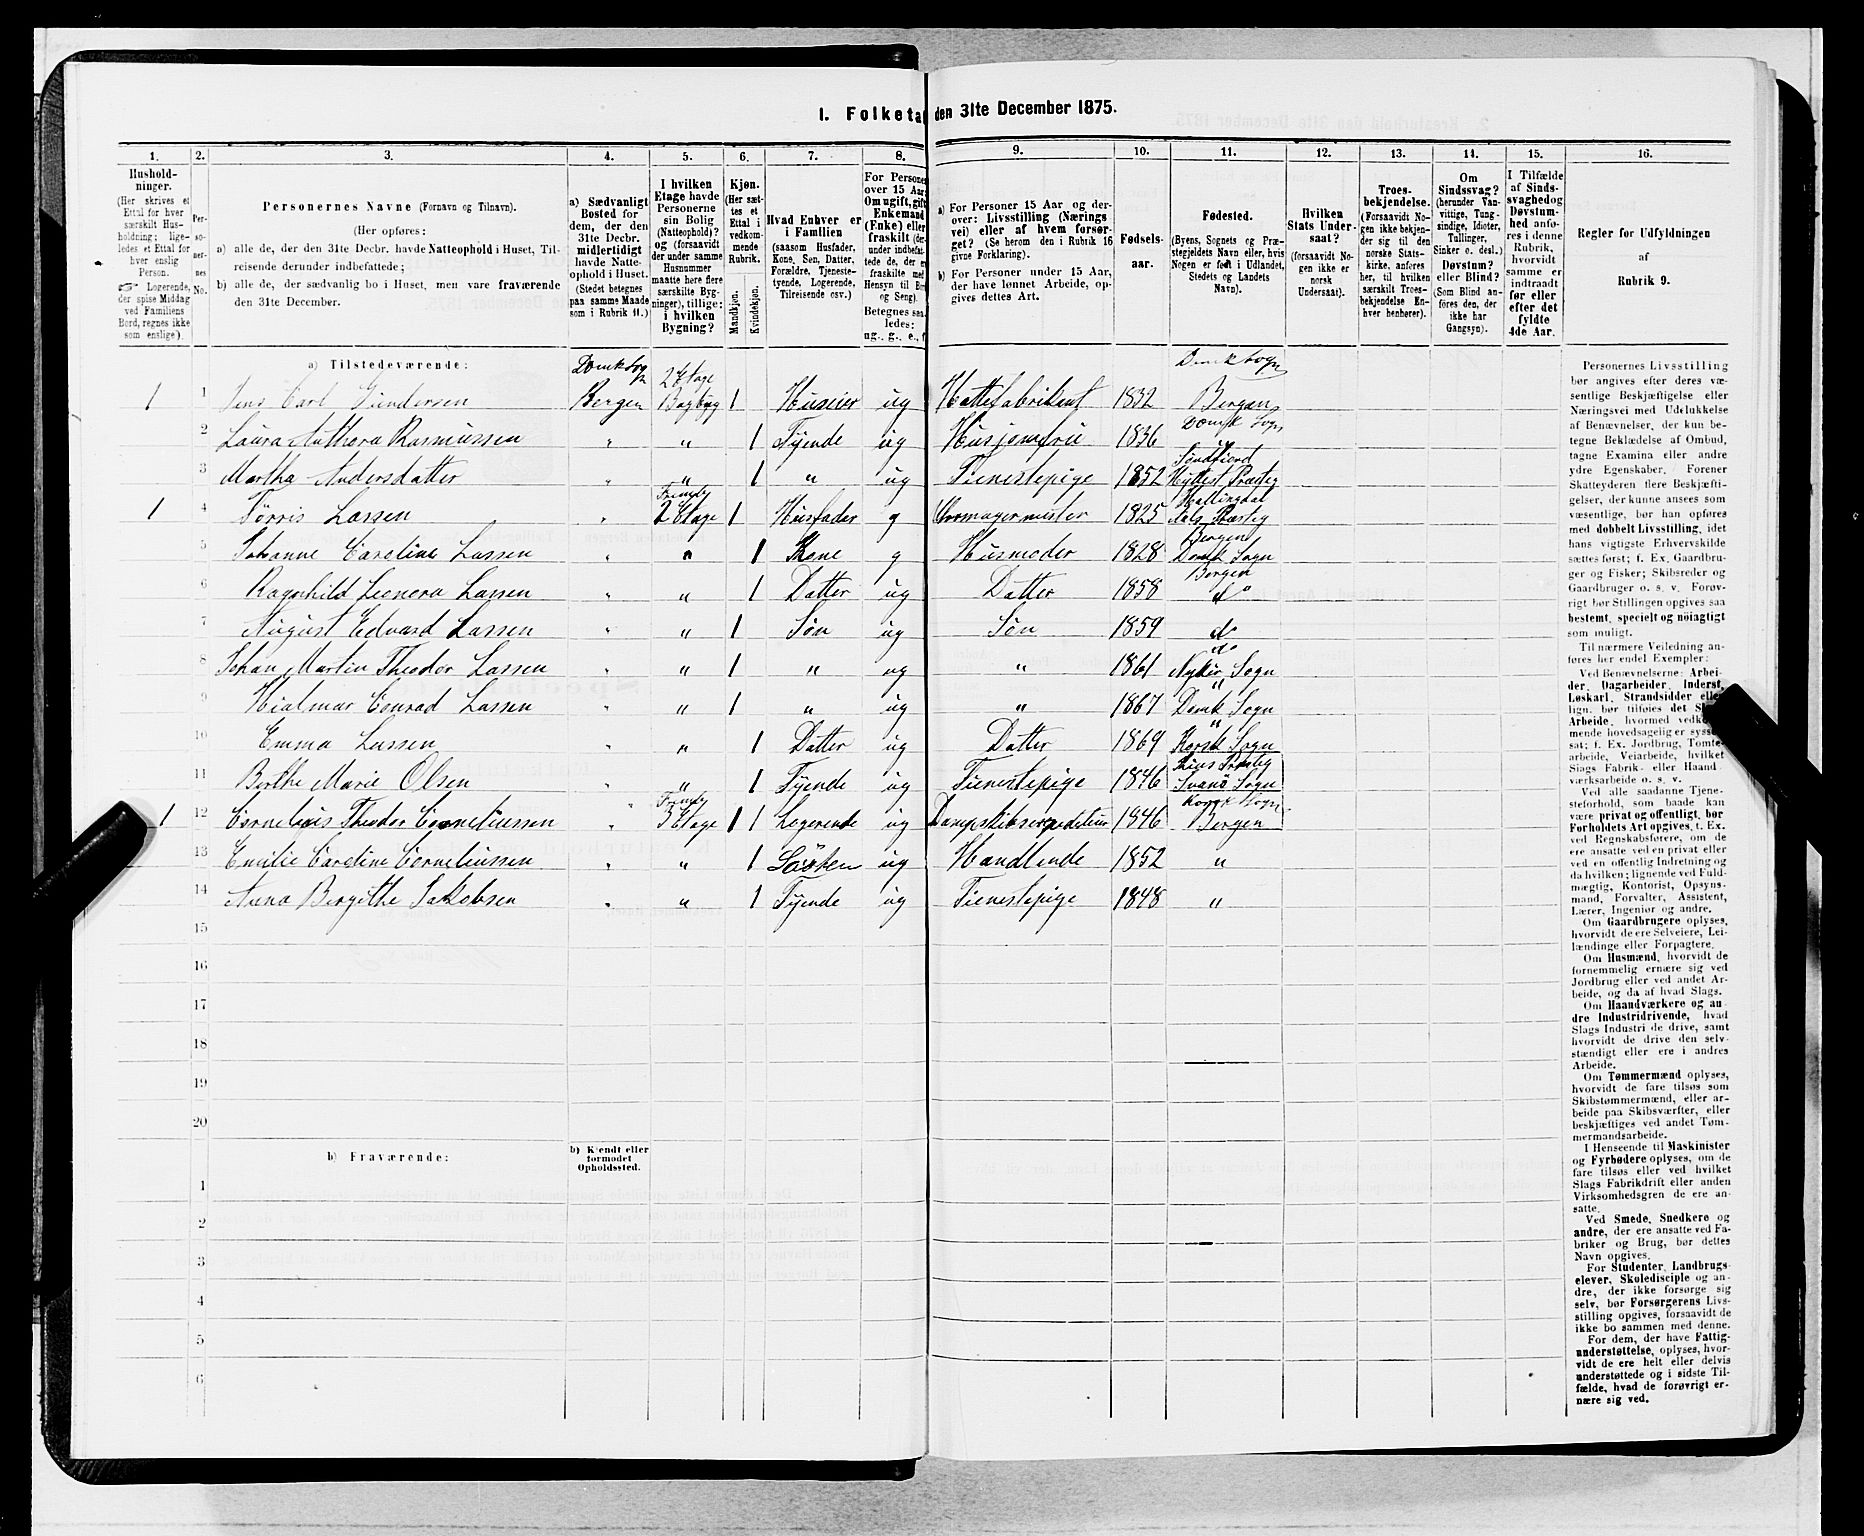 1. Folketæ den 31te December 1875.
1. 2. 3. 4. 5. 6. 7. 8. 9. 10. 11. 12. 13. 14. 15. 16.
Hushold-
ninger.
(Her skrives et
Ettal for hver
særskilt Hus-
holdning; lige-
ledes et Ettal for
hver enslig
Person.
☞ Logerende,
der spise Middag
ved Familiens
Bord, regnes ikke
som enslige).
Per-
so-
ner-
nes
No.
Personernes Navne (Fornavn og Tilnavn).
(Her opføres:
a) alle de, der den 31te Decbr. havde Natteophold i Huset, Til-
reisende derunder indbefattede;
b) alle de, der sædvanlig bo i Huset, men vare fraværende
den 31te December.
a) Sædvanligt
Bosted for
dem, der den
31te Decbr.
midlertidigt
havde Natte-
ophold i Huset.
(Stedet betegnes
paa samme Maade
som i Rubrik 11.)
I hvilken
Etage havde
Personerne
sin Bolig
(Natteophold)?
og (forsaavidt
der under samme
Husnummer
maatte høre flere
særskilte Byg-
ninger), tillige:
i hvilken
Bygning?
Kjøn.
(Her sæt-
tes et
Ettal i
vedkom-
mende
Rubrik.
Mandkjøn.
Kvindekjøn.
Hvad Enhver er
i Familien
(saasom Husfader,
Kone, Søn, Datter,
Forældre, Tjeneste-
tyende, Logerende,
Tilreisende osv.)
For Personer
over 15 Aar:
Om ugift, gift
Enkemand
(Enke) eller
fraskilt (der-
under indbefat-
tede de, der er
fraskilte med
Hensyn til Bo
og Seng).
Betegnes saa-
ledes:
ug., g., e., f
a) For Personer 15 Aar og der-
over: Livsstilling (Nærings
vei) eller af hvem forsør-
get? (Se herom den i Rubrik 16
givne Forklaring).
b) For Personer under 15 Aar,
der have lønnet Arbeide, op-
gives dettes Art.
Fødsels-
aar.
Fødested.
(Byens, Sognets og Præ-
stegjeldets Navn eller, hvis
Nogen er født i Udlandet,
Stedets og Landets
Navn).
Hvilken
Stats Under-
saat?
(forsaavidt No-
gen ikke er
norsk
Undersaat).
Troes-
bekjendelse.
(Forsaavidt No-
gen ikke bekjen-
der sig til den
norske Stats-
kirke, anføres
her, til hvilken
særskilt Troes-
bekjendelse En-
hver henhører).
Om
Sindssvag?
(herunder Van-
vittige, Tung-
sindige, Idioter,
Tullinger,
Sinker o. desl.)
Døvstum?
eller Blind?
(Som Blind an-
føres den, der
ikke har
Gangsyn).
I Tilfælde
af Sinds-
svaghed og
Døvstum-
hed anfø-
res i denne
Rubrik,
hvorvidt
samme er
indtraadt
før eller
efter det
fyldte
4de Aar.
Regler for Udfyldningen
af
Rubrik 9.
a) Tilstedeværende: Domk Sogn 2 Etage Domk Sogn
1 1 Jens Carl Gundersen Bergen Bagbyg 1 Huseier ug Hattefabrikant 1832 Bergen
Domk Sogn
2 Laura Anthora Rasmussen " " 1 Tyende ug Husjomfru 1836 "
Søndfjord
3 Martha Andersdatter " " 1 " ug Tienestepige 1852 Hyllest Præsteg
Frembg Hallingdal
1 4 Tørris Lassen " 2 Etage 1 Husfader g Garmagermester 1825 Aals Præsteg
Bergen
5 Johanne Caroline Lassen " " 1 Kone g Husmoder 1828 Domk Sogn
Bergen
6 Ragnhild Leonora Lassen " " 1 Datter ug Datter 1858 do
7 August Edvard Lassen " " 1 Søn ug Søn 1859 do
do
8 Johan Martin Theodor Lassen " " 1 " ug " 1861 Nykir Sogn
"
9 Hialmar Conrad Lassen " " 1 " ug " 1867 Domk Sogn
"
10 Emma Lassen " " 1 Datter ug Datter 1869 Korsk Sogn
Præsteg
11 Berthe Marie Olsen " " 1 Tyende ug Tienestepige 1846 Svanø Sogn
Frembg Korsk Sogn
1 12 Cornelius Theodor Corneliussen " 3 Etage 1 Logerende ug Dampskibsexpediteur 1846 Bergen
13 Emilie Caroline Corneliussen " " 1 Søsken ug Handlende 1852 "
14 Anna Birgithe Jakobsen " " 1 Tyende ug Tienestepige 1848 "
15
16
17
18
19
20
b) Fraværende:
b) Kjendt eller
formodet
Opholdssted.
1
2
3
4
5
6
Personernes Livsstilling
bør angives efter deres væ-
sentlige Beskjæftigelse eller
Næringsvei med Udelukkelse
af Benævnelser, der kun be-
tegne Beklædelse af Ombud,
tagne Examina eller andre
ydre Egenskaber. Forener
Skatteyderen flere Beskjæfti-
gelser, der kunne ansees som
væsentlige, bør han opføres
med dobbelt Livsstilling, idet
hans vigtigste Erhvervskilde
sættes først; f. Ex. Gaardbru-
ger og Fisker; Skibsreder og
Gaardbruger o. s. v. Forøv-
rigt bør Stillingen opgives saa
bestemt, specielt og nøiagtigt
som muligt.
Til nærmere Veiledning an-
føres her endel Exempler:
Ved Benævnelserne: Arbei-
der, Dagarbeider, Inderst,
Løskarl, Strandsidder eller
lign. bør tilføies det Sl
Arbeide, hvormed vedko
mende hovedsagelig er syssel
sat; f. Ex. Jordbrug, Tomte-
arbeide, Veiarbeide, hvilket
Slags Fabrik- eller Haand
værksarbeide o. s. v.
Ved alle saadanne Tjene-
steforhold, som baade kan
være privat og offentligt, bør
Forholdets Art opgives, t. Ex.
ved Regnskabsførere, om de
ere ansatte ved en privat eller
ved en offentlig Indretning og
da hvilken; lignende ved Fuld-
mægtig, Kontorist, Opsyns-
mand, Forvalter, Assistent,
Lærer, Ingeniør og andre.
Om Gaardbrugere oplyses,
hvorvidt de ere Selveiere, Lei-
lændinge eller Forpagtere.
Om Husmænd, hvorvidt de
fornemmelig ernære sig ved
Jordbrug eller ved andet Ar-
beide, og da af hvad Slags.
Om Haandværkere og an
dre Industridrivende, hvad
Slags Industri de drive, samt
hvorvidt de drive den selv-
stændigt eller ere i andres
Arbeide.
Om Tømmermænd oplyses,
hvorvidt de fare tilsøs som
Skibstømmermænd, eller ar-
beide paa Skibsværfter, eller
beskjæftiges ved andet Tøm-
mermandsarbeide.
I Henseende til Maskinister
og Fyrbødere oplyses, om de
fare tilsøs eller ved hvilket
Slags Fabrikdrift eller anden
Virksomhedsgren de ere an-
satte.
Ved Smede, Snedkere og
andre, der ere ansatte ved Fa-
briker og Brug, bør dettes
Navn opgives.
For Studenter, Landbrugs-
elever, Skoledisciple og an-
dre, der ikke forsørge sig
selv, bør Forsørgerens Livs-
stilling opgives, forsaavidt de
ikke bo sammen med denne.
For dem, der have Fattig-
understøttelse, oplyses, hvor-
vidt de ere helt eller delvis
understøttede og i sidste Til-
fælde, hvad de forøvrigt er-
nære sig ved.